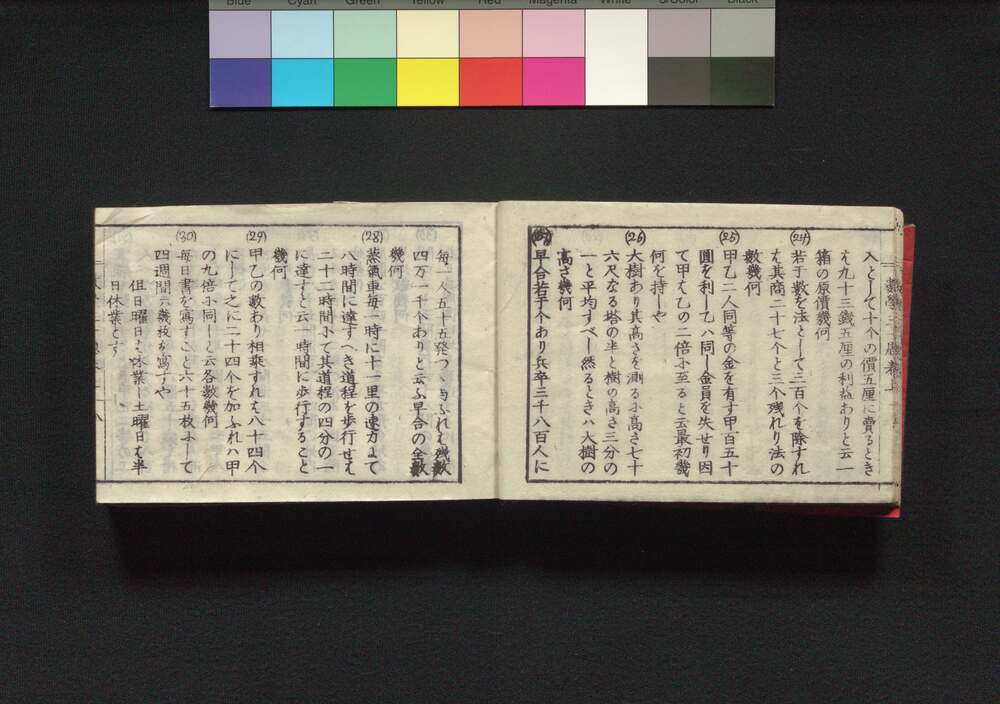 Blue Cyan Green Yellow Red Magenta White 3/Color Black
入として十个の價五厘に賣るとき
は九十三錢五厘の利益ありと云一
箱の原價幾何
(24)
若干數を法として三百个を除すれ
は其商二十七个と三个残れり法の
數幾何
(25)
甲乙二人同等の金を有す甲百五十
圓を利し乙ハ同し金員を失せり因
て甲は乙の二倍に至ると云最初幾
何を持しや
(26)
大樹あり其高さを測るに高さ七十
六尺なる塔の半と樹の高さ三分の
一と平均すべし然るときハ大樹の
高さ幾何
(27)
早合若干个あり兵卒三千八百人に
毎一人五十五発つゝ与ふれは残數
四万一千个ありと云ふ早合の全數
幾何
(28)
蒸氣車毎一時に十一里の速力まて
八時間に達すへき道程を歩行せは
二十二時間にて其道程の四分の一
に達すと云一時間に歩行すること
幾何
(29)
甲乙の數あり相乘すれは八十四个
にして之に二十四个を加ふれハ甲
の九倍に同しと云各數幾何
(30)
毎日書を寫すこと六十五枚にして
四週間に幾枚を寫すや
但日曜日は休業し土曜日は半
日休業とす